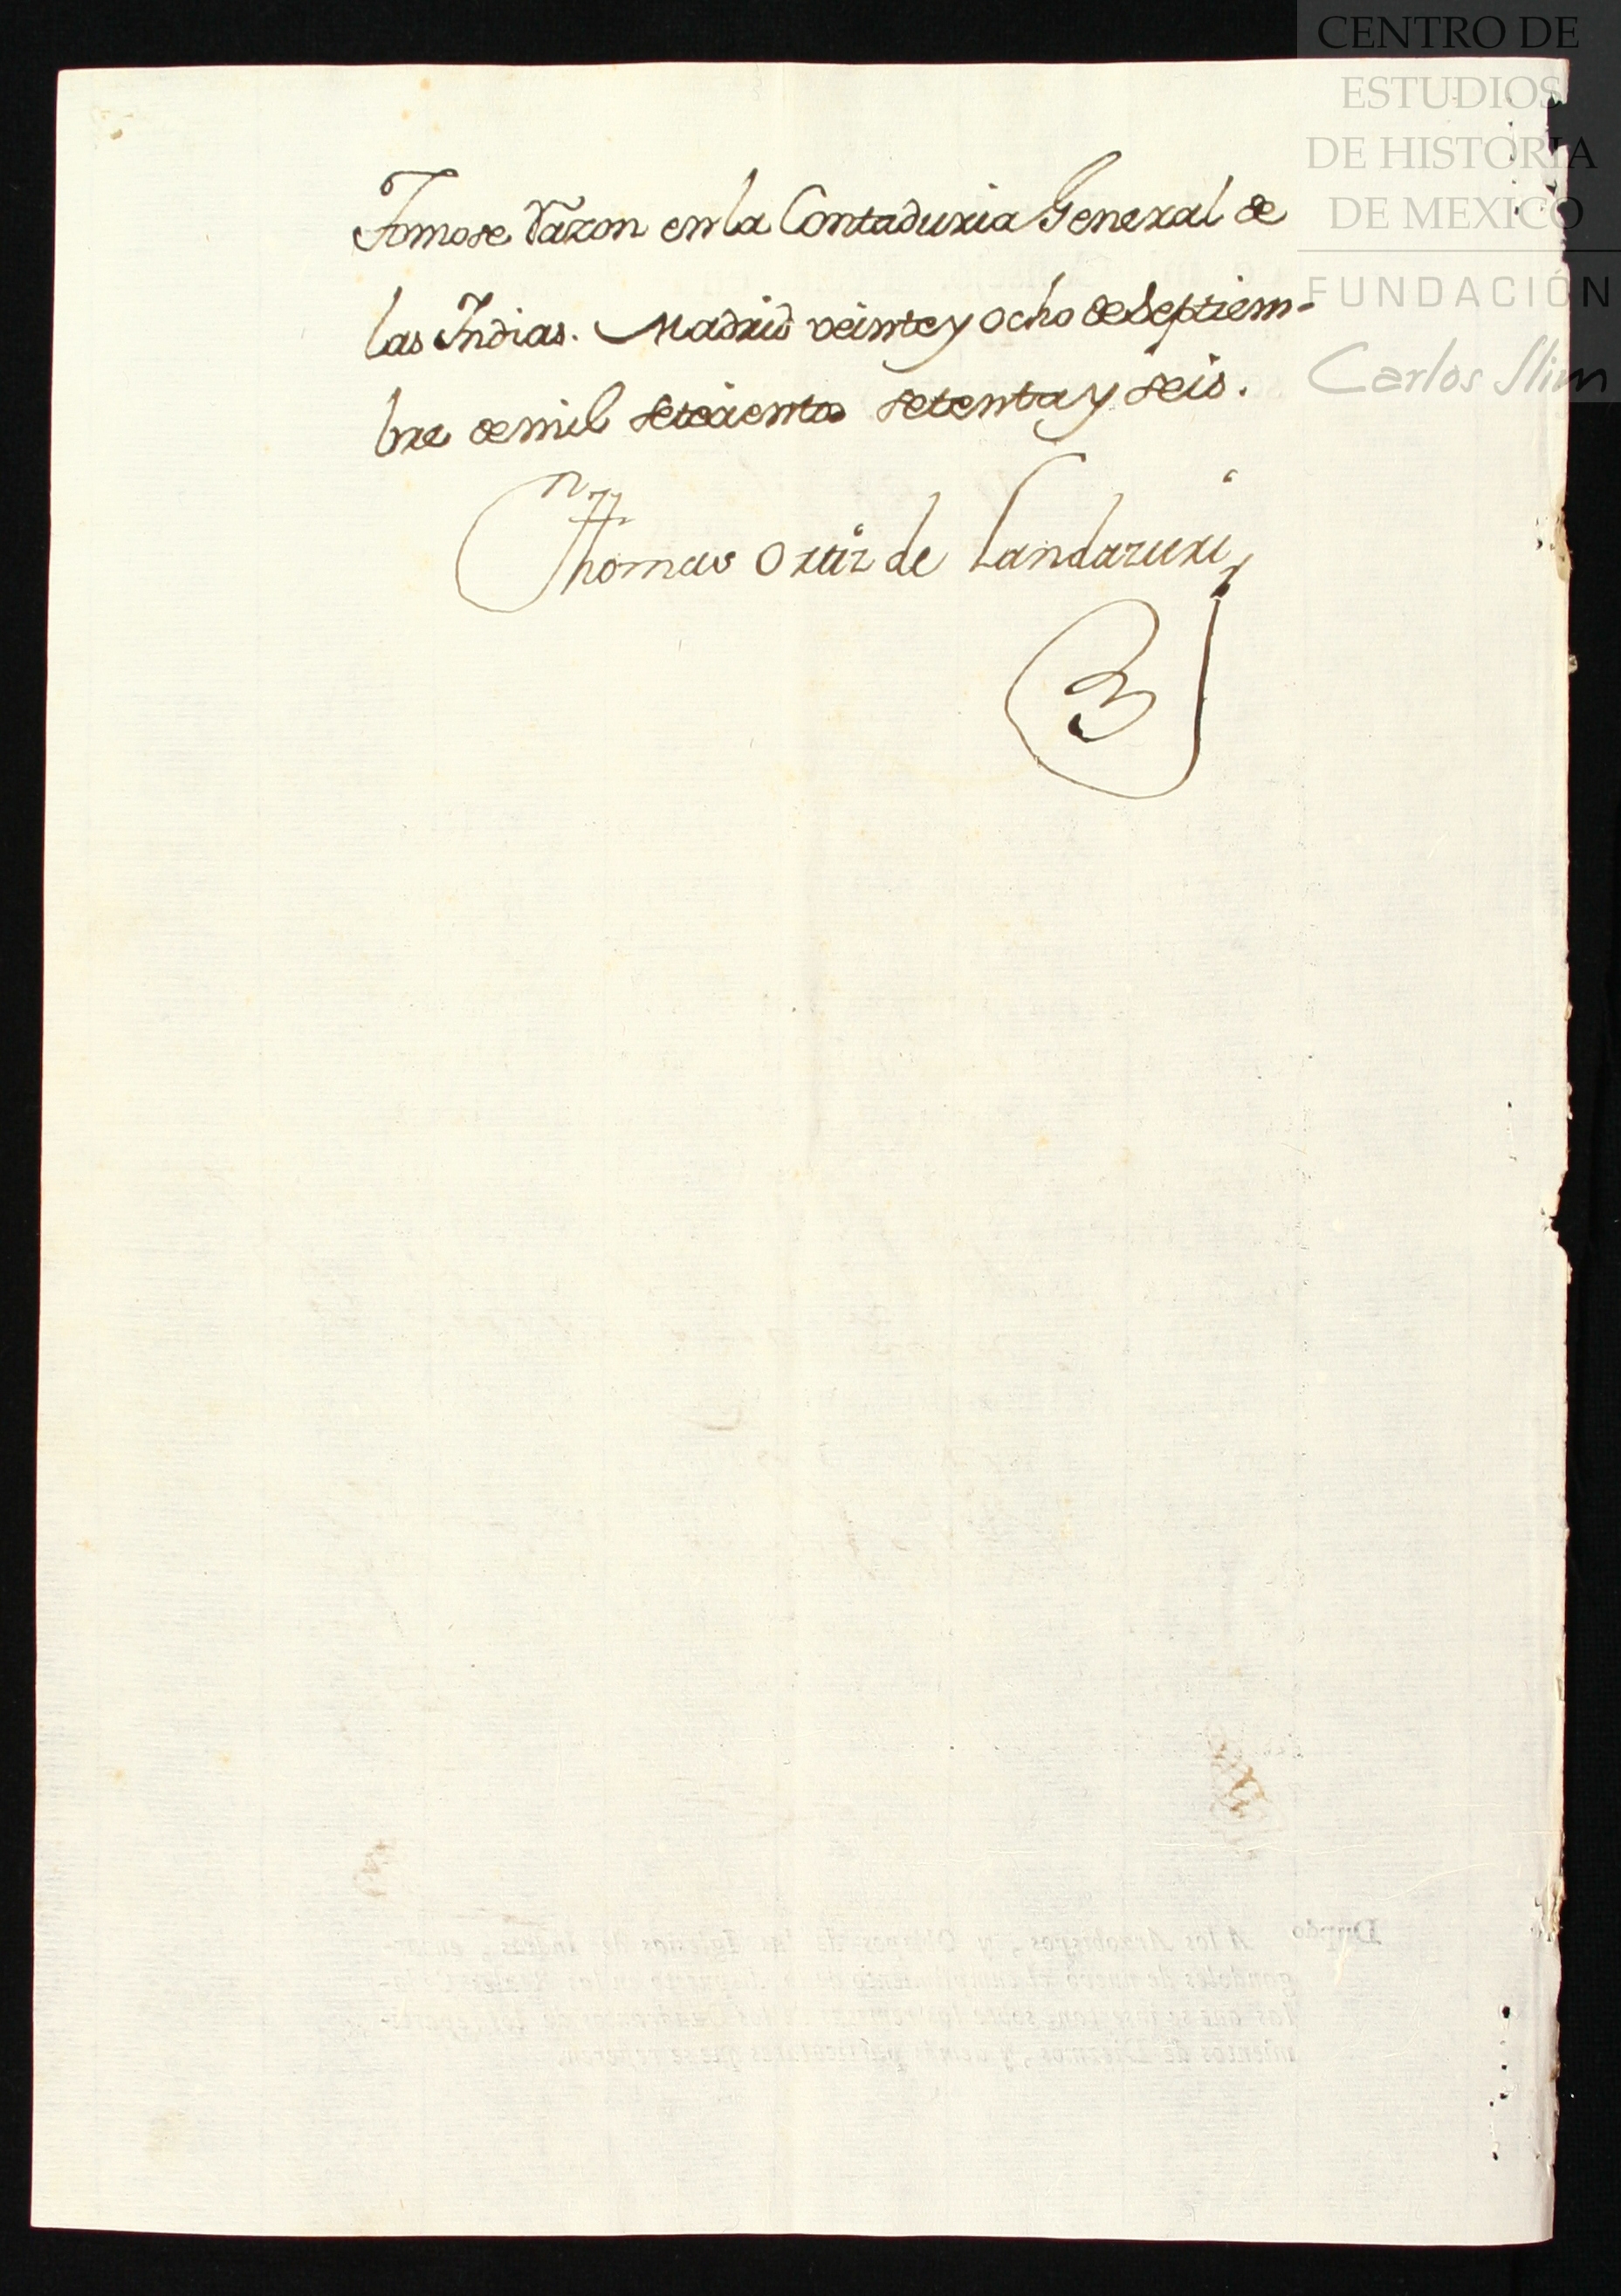 CENTRO DE
ESTUDIOS
DE HISTORIA
DE MEXICO
FUNDACIÓN
Carlos Slim
Tomose razon en la Contaduria General de
las Indias. Madrid veinte y ocho de Septiem-
bre de mil setecientos setenta y seis.
Dn Thomas Ortiz de Landazuri
A los Arzobispos, y Obispos de las Iglesias de Indias, encar-
gandoles de nuevo el cumplimiento de lo dispuesto en las Reales Cedu-
las que se insertan, sobre los
mientos de Diezmos, y demás particulares que se refieren.